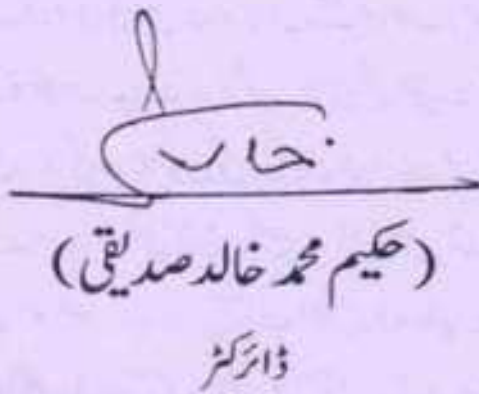 (حکیم محمد خالد صدیقی)
ڈائرکٹر